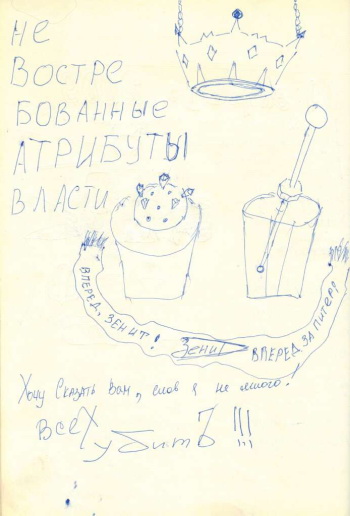 НЕ
ВОСТРЕ
БОВАННЫЕ
АТРИБУТЫ
ВЛАСТИ
ВПЕРЕД, ЗЕНИТ!
Зенит
ВПЕРЕД ЗА ПИТЕР!
Хочу Сказать Вам, слов я не много!
ВСЕХ
УБИТЬ !!!